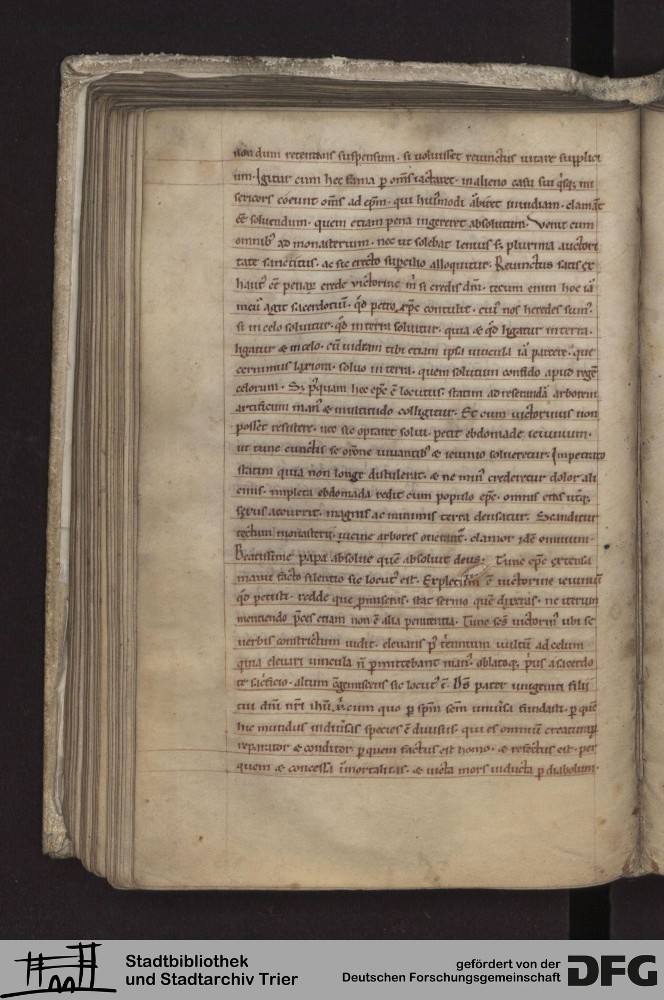 dum retentans suspensum. si voluisset revinctus vitare supplici
um. Igitur cum hec fama p om̅s iactaret. in alieno casu sui q̇sq; mi
sericors coeunt om̅s ad ep̅m. qui hui'modi abiret invidiam. clamāt
eē solvendum. quem etiam pena ingereret absolutum. Venit cum
omnib' ad monasterium. nec ut solebat lenius s; plurima auctori
tate sancitus. ac sic erecto supcilio alloquitur. Revinctus satis ex
haut' eē penaȝ crede victorine m̄ si credis dm̅. tecum enim hoc iā
meū agit sacerdotiū. qd petro xp̅c contulit. cui' nos heredes sum'.
si in celo solvitur. qd in terra solvitur. quia & qd ligatur in terra.
ligatur & in celo. cū videam tibi etiam ipsa vincula iā parcere. que
cernimus laxiora. solvo in terra. quem solutum confido apud regē
celorum. S; p'quam hec ep̅c ē locutus. statim ad resecandā arborem
artificum man' & multitudo colligitur. Et cum victorinus non
posset resistere. nec sic optaret solvi. petit ebdomade ieiunium.
ut tunc cunctis se or̅one iuvantib' & ieiunio solveretur. Impetrato
statim quia non longe distulerat. & ne min' crederetur dolor ali
enus. impleta ebdomada redit cum populo ep̅c. omnis etas utq;
sexus accurrit. magnis ac minimis terra densatur. Scanditur
tectum monasterii. vicine arbores onerant̅. clamor idē omnium.
Beatissime papa absolve quē absolvit deus. Tunc ep̅c extensa
manu facto silentio sic locut' est. Expletū ē victorine ieiuniū
qd petisti. redde que pmiseras. stat sermo quē dixeras. ne iterum
mentiendo p̅ces etiam non ē alia penitentia. Tunc sc̅s victorin' ubi se
verbis constrictum vidit. elevans p' triennium vultū ad celum
quia elevari vincula n̄ pmittebant man'. oblatoq; prius a sacerdo
te sacrificio. altum ingemiscens sic locut' ē. Ds̅ pater unigeniti filii
tui dn̅i nr̅i ihu̅ xp̅i. cum quo p sp̅m sc̅m univ̅sa fundasti. p quē
hic mundus in div̅sas species ē divisus. qui es omniū creaturaȝ
reparator & conditor. p quem factus est homo. & refectus est. per
quem & concessa īmortalitas. & victa mors inducta p diabolum.
Stadtbibliothek
und Stadtarchiv Trier
gefördert von der
Deutschen Forschungsgemeinschaft
DFG